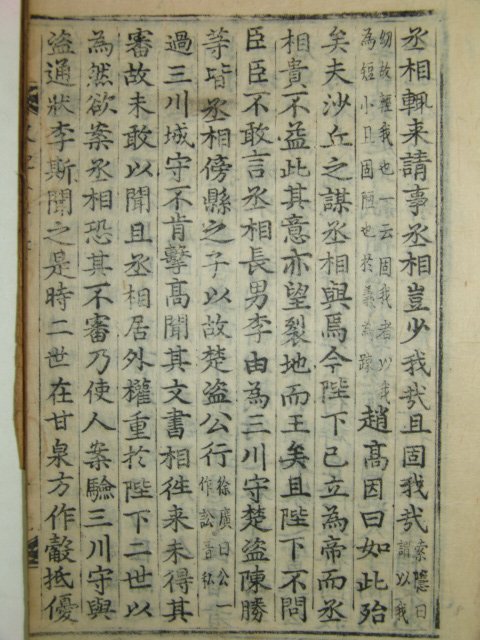 丞相輒来請事丞相豈少我㦲且固我㦲索隱曰謂以我
幼故輕我也一云固我者以我為短小且固陋也於義為踈趙高因曰如此殆
矣夫沙丘之謀丞相與焉今陛下已立為帝而丞
相貴不益此其意亦望裂地而王矣且陛下不問
臣臣不敢言丞相長男李由為三川守楚盜陳勝
等皆丞相傍縣之子以故楚盜公行徐廣曰公一作訟音松
過三川城守不肯擊高聞其文書相徃来未得其
審故未敢以聞且丞相居外權重於陛下二世以
為然欲案丞相恐其不審乃使人案驗三川守與
盜通狀李斯聞之是時二世在甘泉方作觳抵優